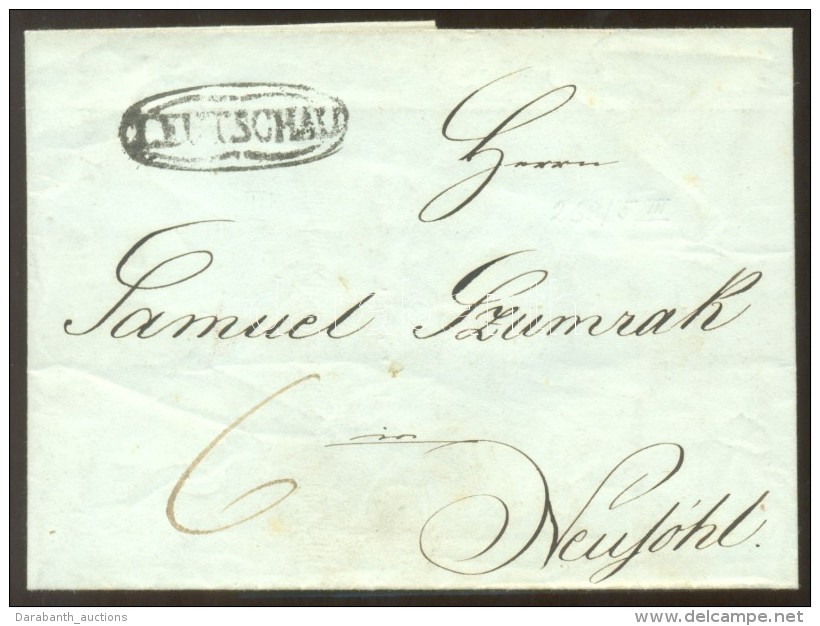 LEUTSCHAU
Herrn
Samuel Szumrak
6
in
Neusöhl.
Darabanth_auctions
delcampe.net